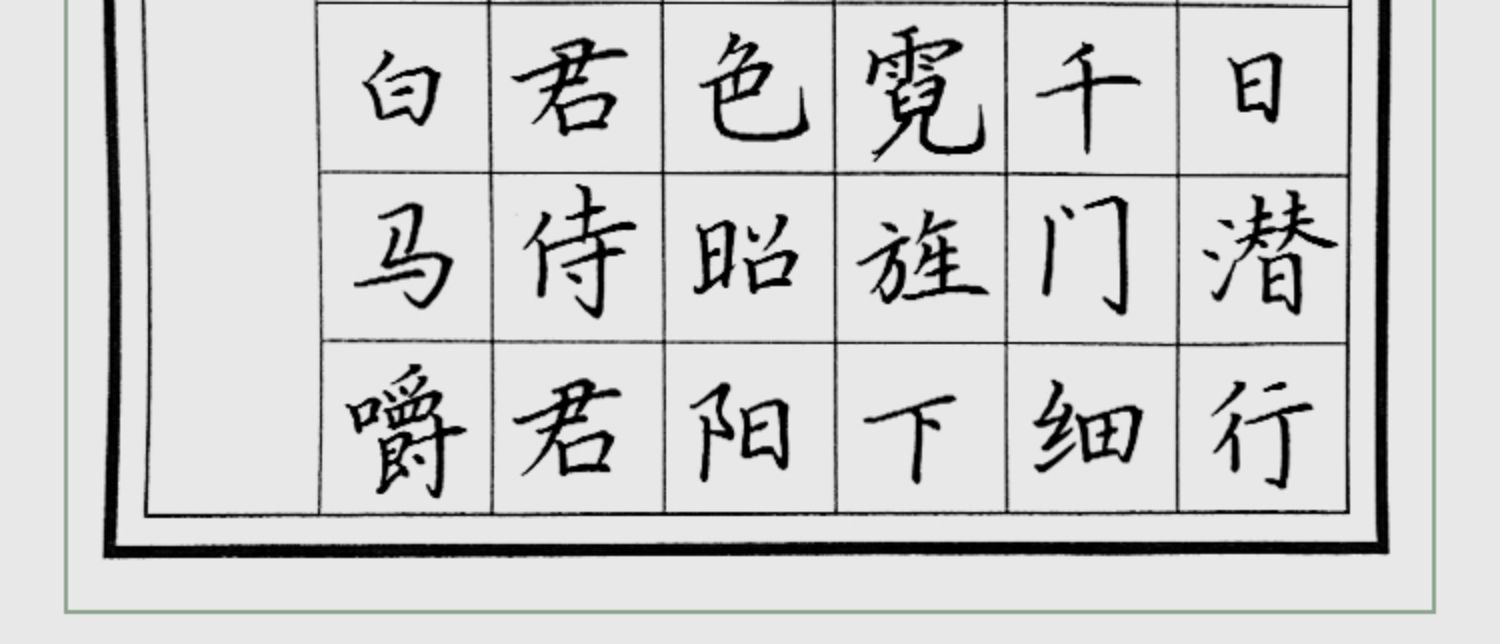 日潜行
千门细
霓旌下
色昭阳
君侍君
白马嚼